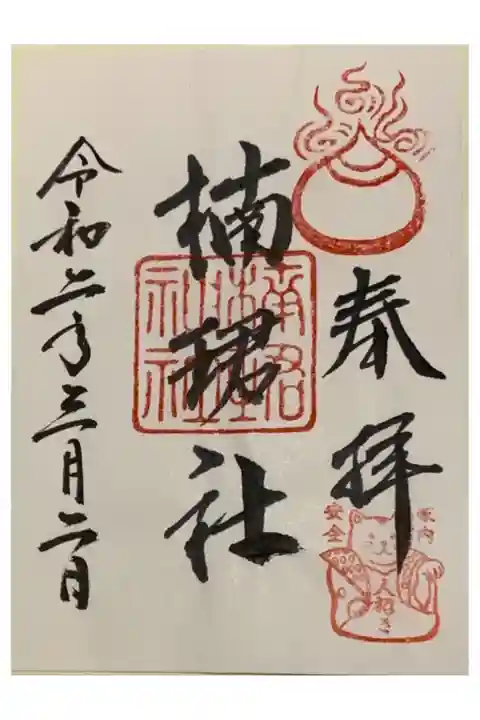 奉拝
家内
安全
人招き
楠珺社
令和二年三月二日